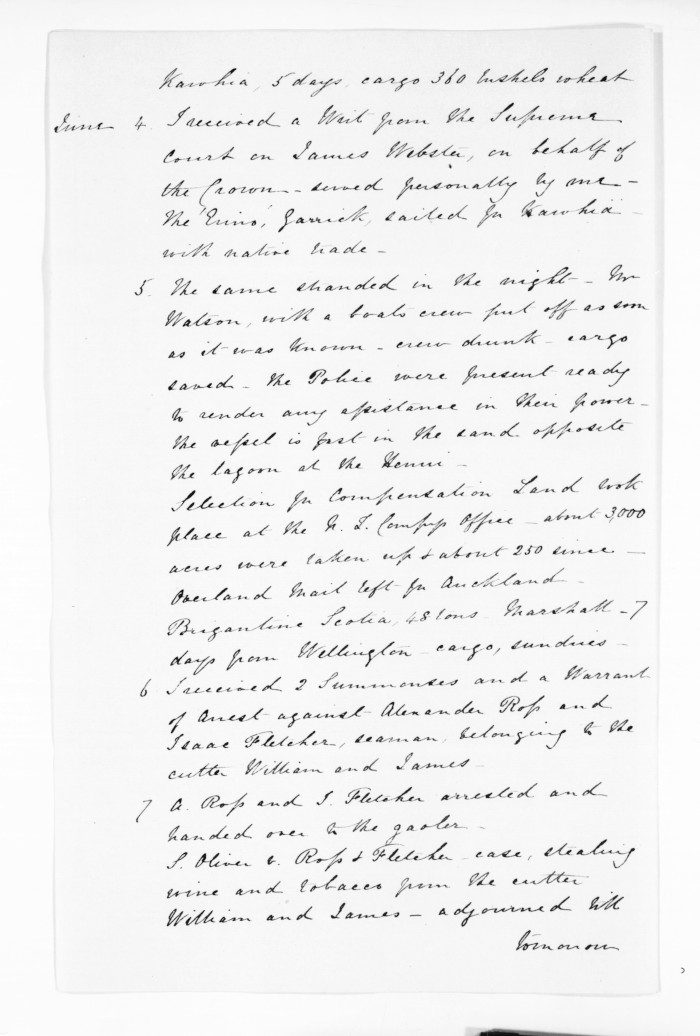 Kawhia, 5 days, cargo 360 bushels wheat
June 4. I received a Writ from the Supreme
Court on James Webster, on behalf of
the Crown - served personally by me -
The 'Erino', Garrick, sailed for Kawhia
with native trade -
5. The same stranded in the night - Mr
Watson, with a boats crew put off as soon
as it was known - crew drunk - cargo
saved - the Police were present ready
to render any assistance in their power -
the vessel is fast in the sand opposite
the lagoon at the Henui -
Selection for Compensation Land took
place at the N. Z. Compys Office - about 3,000
acres were taken up & about 250 since -
Overland Mail left for Auckland -
Brigantine Scotia, 48 tons - Marshall - 7
days from Wellington - cargo, sundries -
6 I received 2 Summonses and a Warrant
of Arrest against Alexander Ross and
Isaac Fletcher, seaman, belonging to the
cutter William and James -
7 A. Ross and I. Fletcher arrested and
handed over to the gaoler -
S. Oliver v. Ross & Fletcher - case, stealing
wine and tobacco from the cutter
William and James - adjourned till
tomorrow